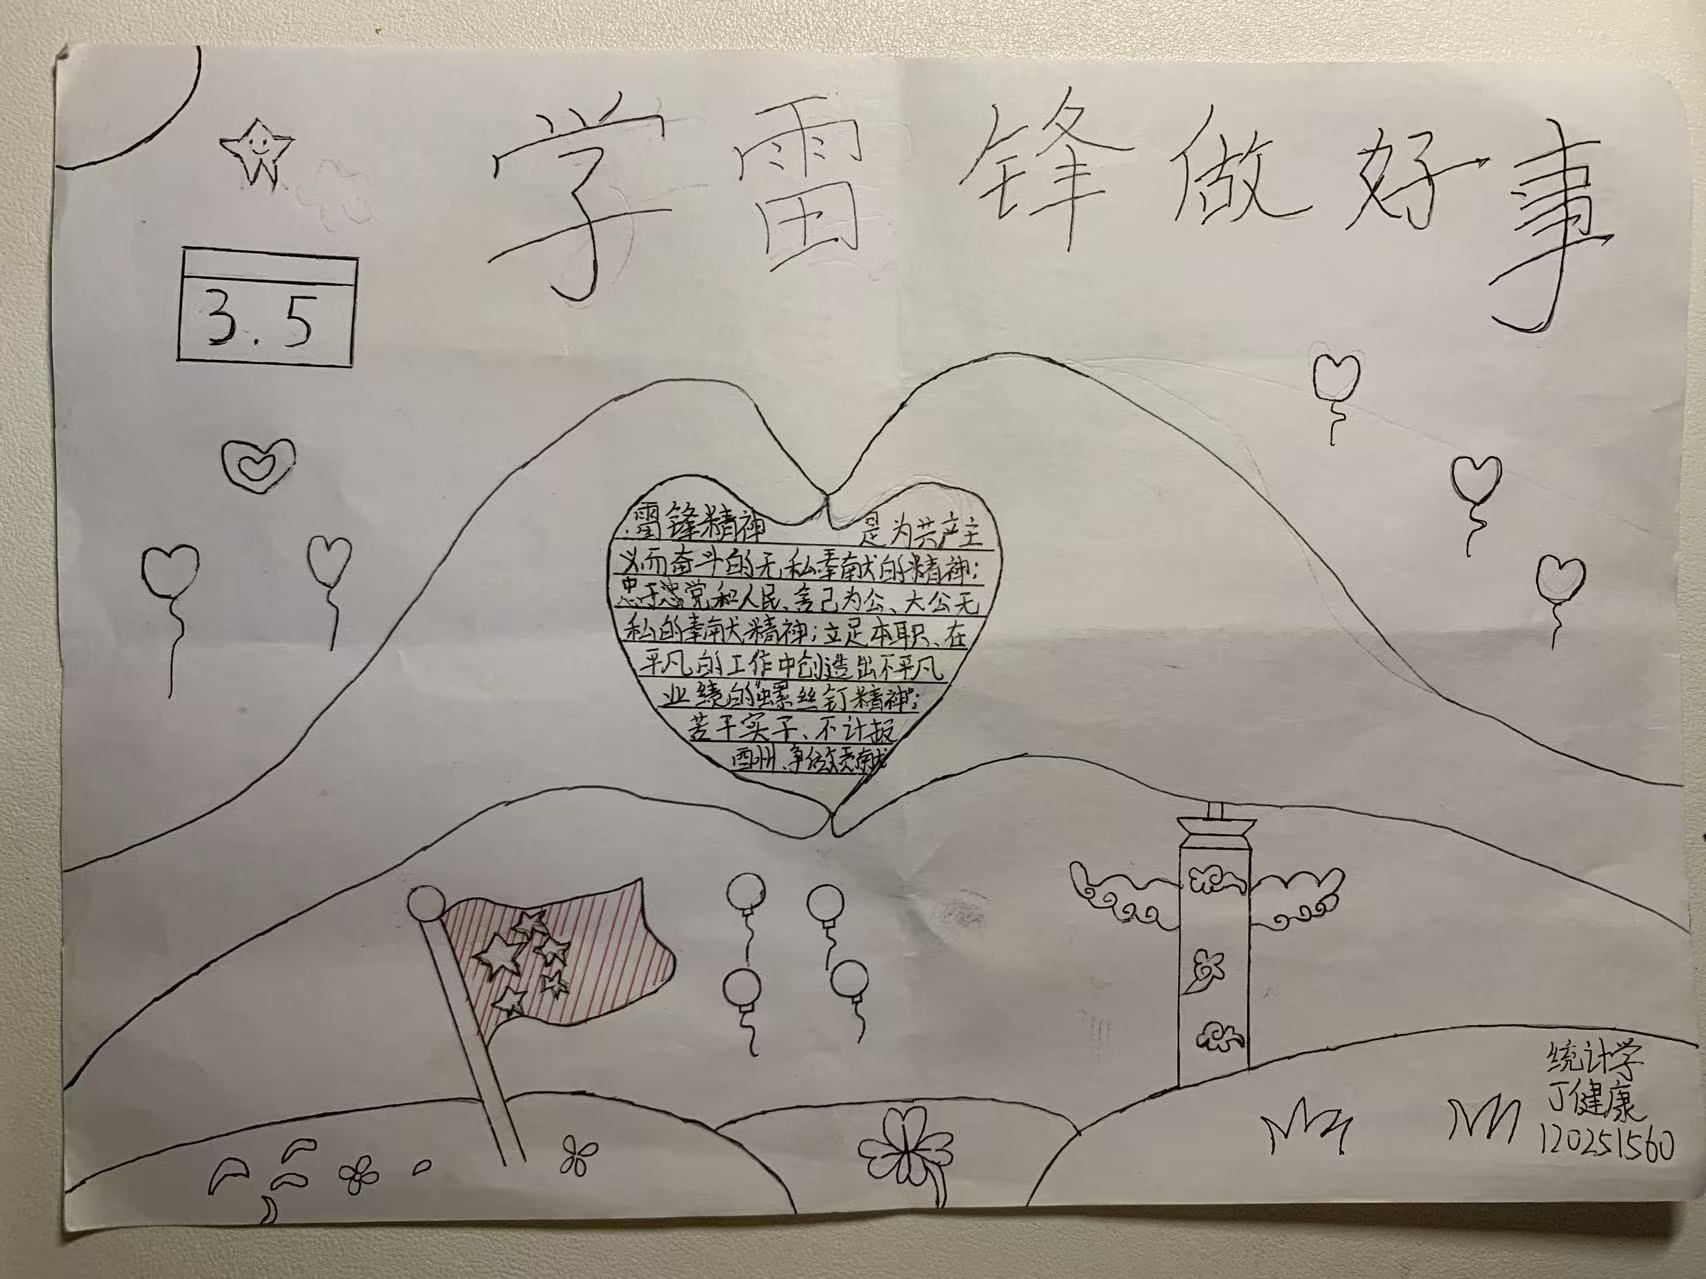 学雷锋做好事
3.5
雷锋精神 是为共产主
义而奋斗的无私奉献的精神;
忠于党和人民、舍己为公、大公无
私的奉献精神;立足本职、在
平凡的工作中创造出不平凡
业绩的"螺丝钉精神";
苦干实干、不计报
酬、争做贡献
统计学
丁健康
120251560